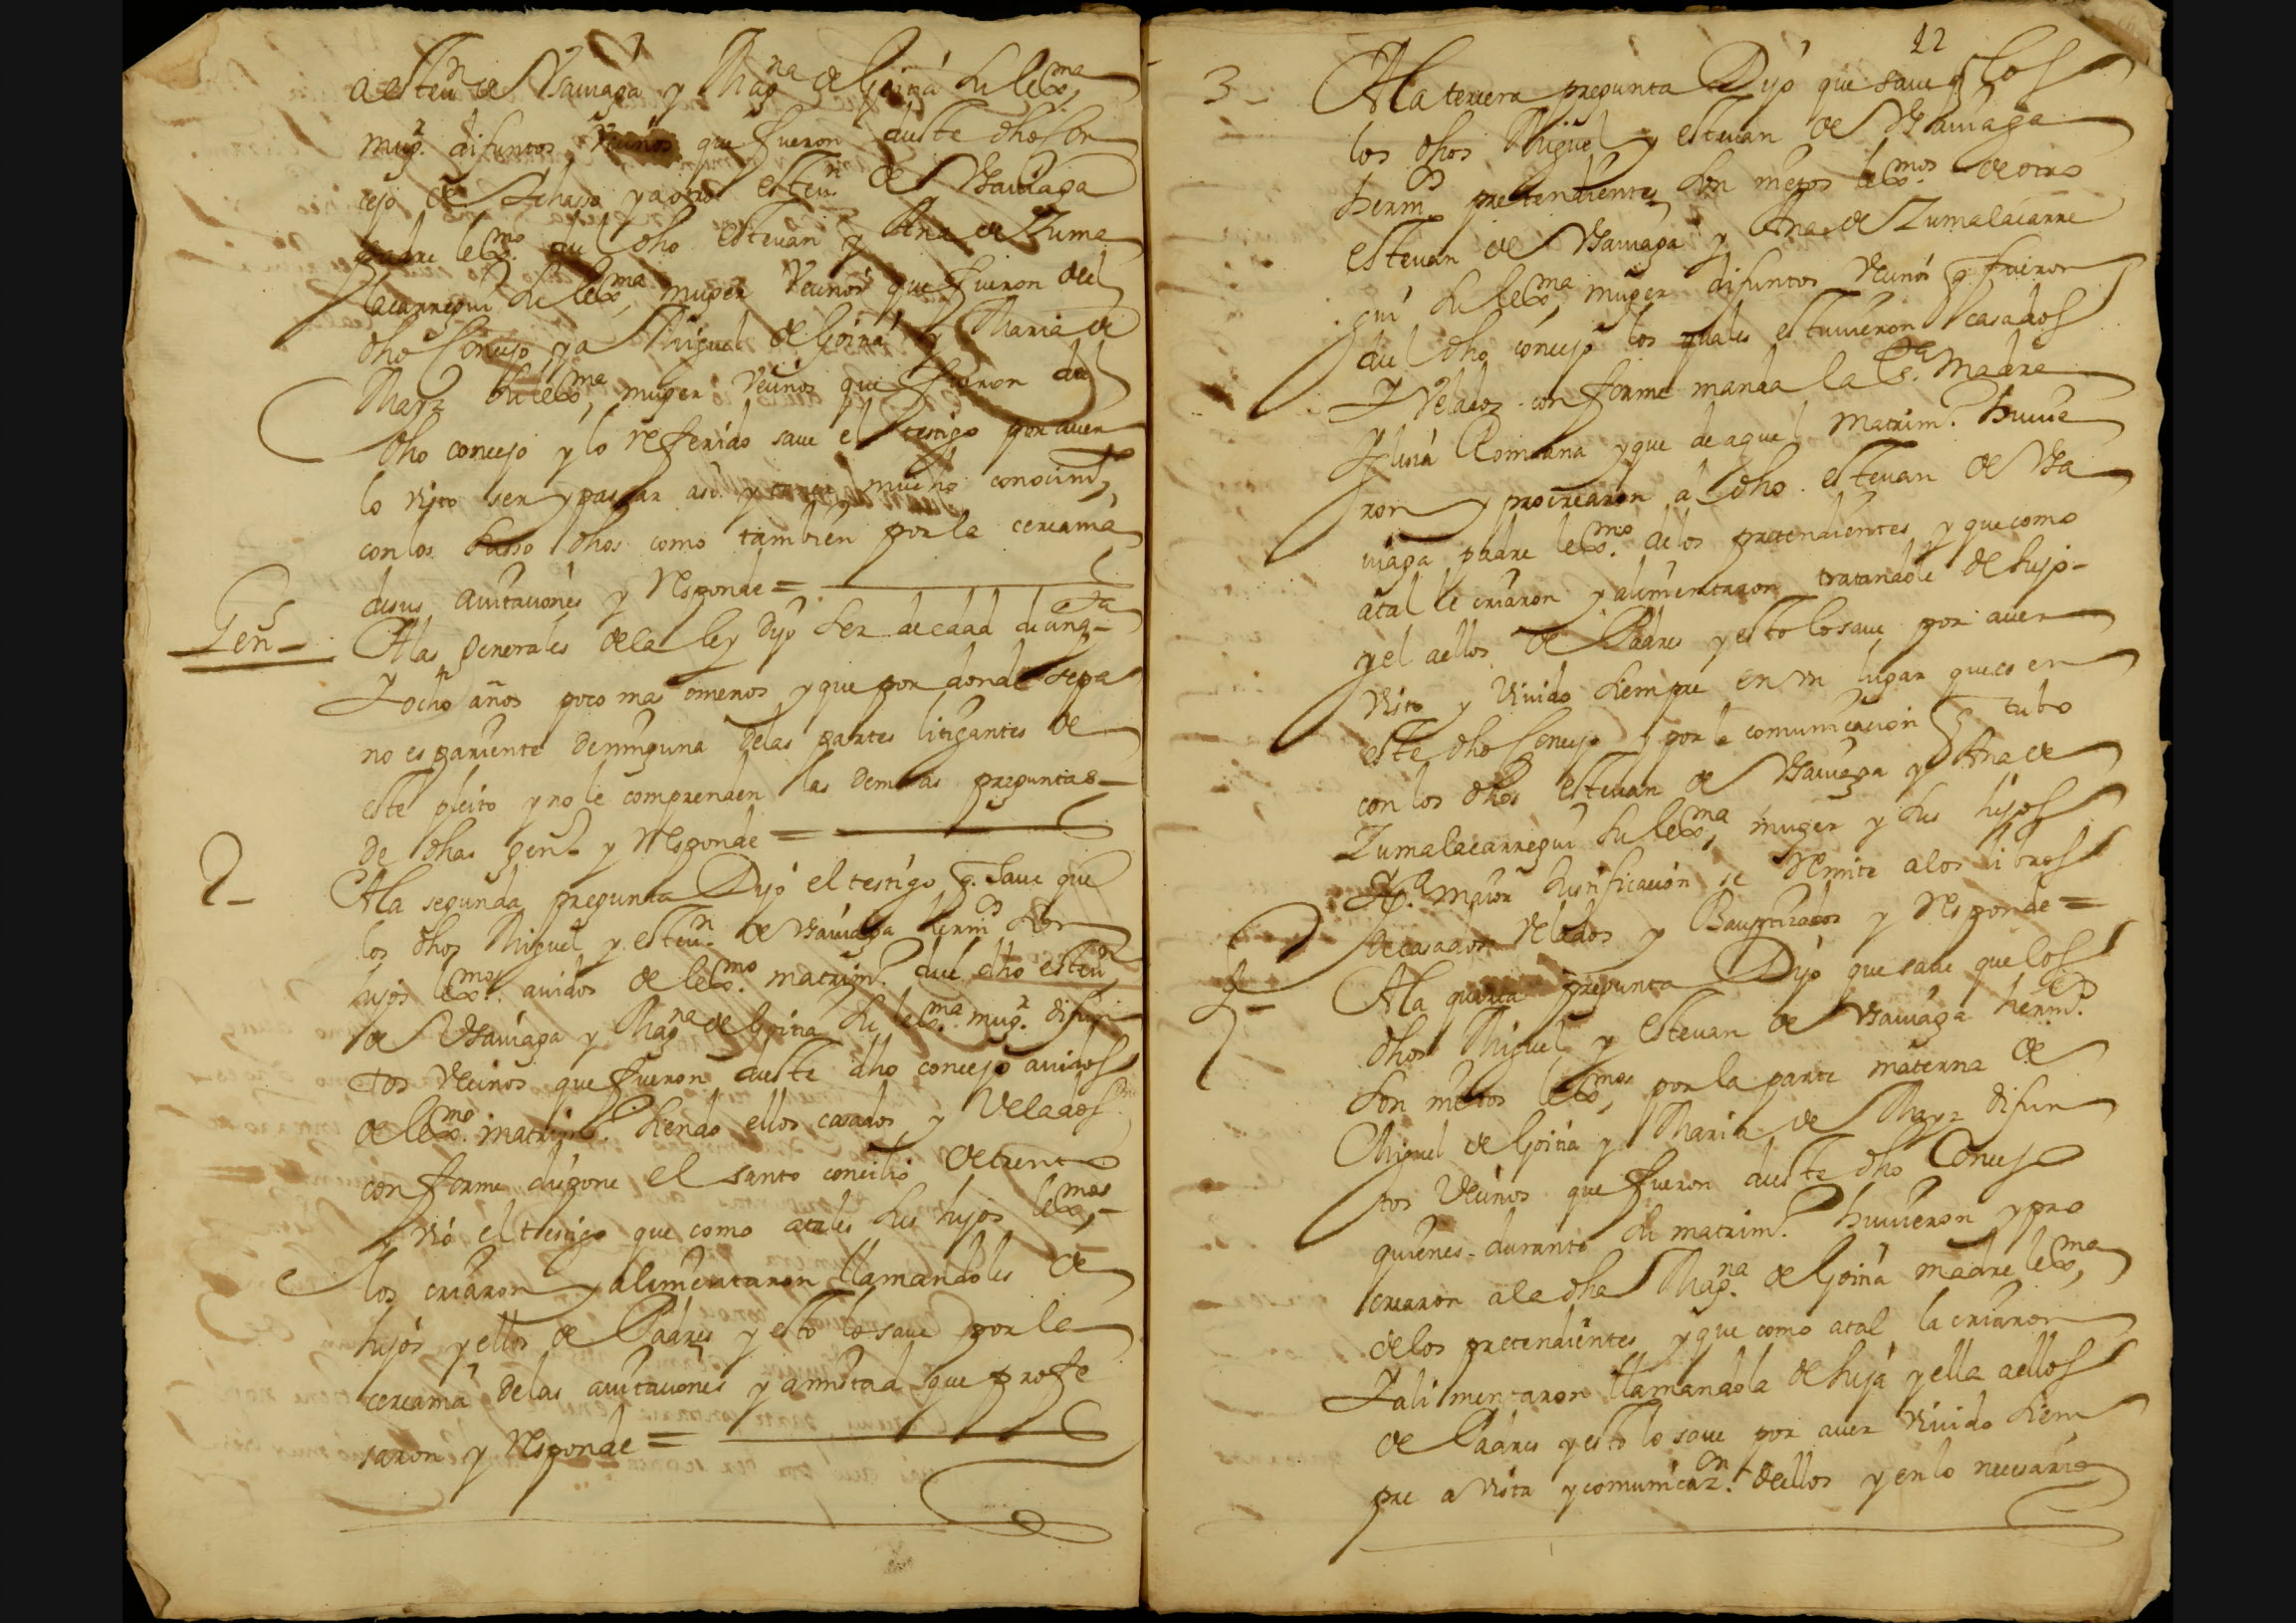 a estevn de Ysauaga y Magna de Goiña su lexma
mugr. difuntos Vecinos que fueron deeste dho con
cejo de y a otro estevn. de Ysauaga
padre lexmo. del dho estevan y Ana de Zuma
lacarregui su lexma muger Vecinos que fueron del
dho Concejo y a Miguel de Goiña y Maria de
Mayz su lexma, muger Vecinos que fueron del
dho concejo y lo referido saue el testigo por auer
lo visto ser y passar asi y tener mucho conocimto,
con los susso dhos como tambien por la cercania
de sus auitaciones y responde =
Gen
A las generales de la ley Dijo ser de edad de cinqta
y ocho años poco mas o menos y que por donde sepa
no es pariente de ninguna de las partes litigantes de
este pleito y no le comprenden las demas preguntas
de dhas genes y responde =
2
A la segunda pregunta Dijo el testigo q. saue que
los dhos Miguel y estevn. de Ysauaga hermos son
hijos lexmos. auidos de lexmo. matrimo. del dho estevn
de Ysauaga y Magna de Goiña su lexma. mugr. difun
tos Vecinos que fueron deeste dho concejo auidos
de lexmo. matrimo. siendo ellos casados y Velados
conforme dispone el santo concilio de trento
y vio el testigo que como atales sus hijos lexmos,
los criaron y alimentaron llamandoles de
hijos y ellos de Padres y esto lo saue por la
cercania de las auitaciones y amistad que profe
saron y responde =
12
3
A la tercera pregunta Dijo que saue q los
los dhos Miguel y estevan de Ysauaga
hermos pretendientes son nietos lexmos. de otro
estevan de Ysauaga y Ana de Zumalacarre
gui su lexma, muger difuntos Vecinos q fueron
del dho concejo los quales estuuieron casados
y Velados conforme manda la Sta. Madre
Yglesia Romana y que de aquel matrimo. huuie
ron y procrearon a dho estevan de Ysa
uaga padre lexmo. de los pretendientes y que como
atal le criaron y alimentaron tratandole de hijo
y el a ellos de Padres y esto lo saue por auer
visto y Viuido siempre en un lugar que es en
este dho Concejo y por la comunicacion q tubo
con los dhos estevan de Ysauaga y Ana de
Zumalacarregui su lexma, muger y sus hijos
Ya. maior Justificacion se remite a los libros
de casados Velados y Bauptizados y responde =
4
A la quarta pregunta Dijo que saue que los
dhos Miguel y estevan de Ysauaga hermos.
son nietos lexmos, por la parte materna de
Miguel de Goiña y Maria de Mayz difun
tos Vecinos que fueron deeste dho Concejo
quienes durante su matrimo. huuieron y pro
crearon a la dha Magna. de Goiña madre lexma,
de los pretendientes y que como atal la criaron
y alimentaron llamandola de hija y ella a ellos
de Padres y esto lo saue por auer Viuido siem
pre a vista y comunicazon. deellos y en lo necesario